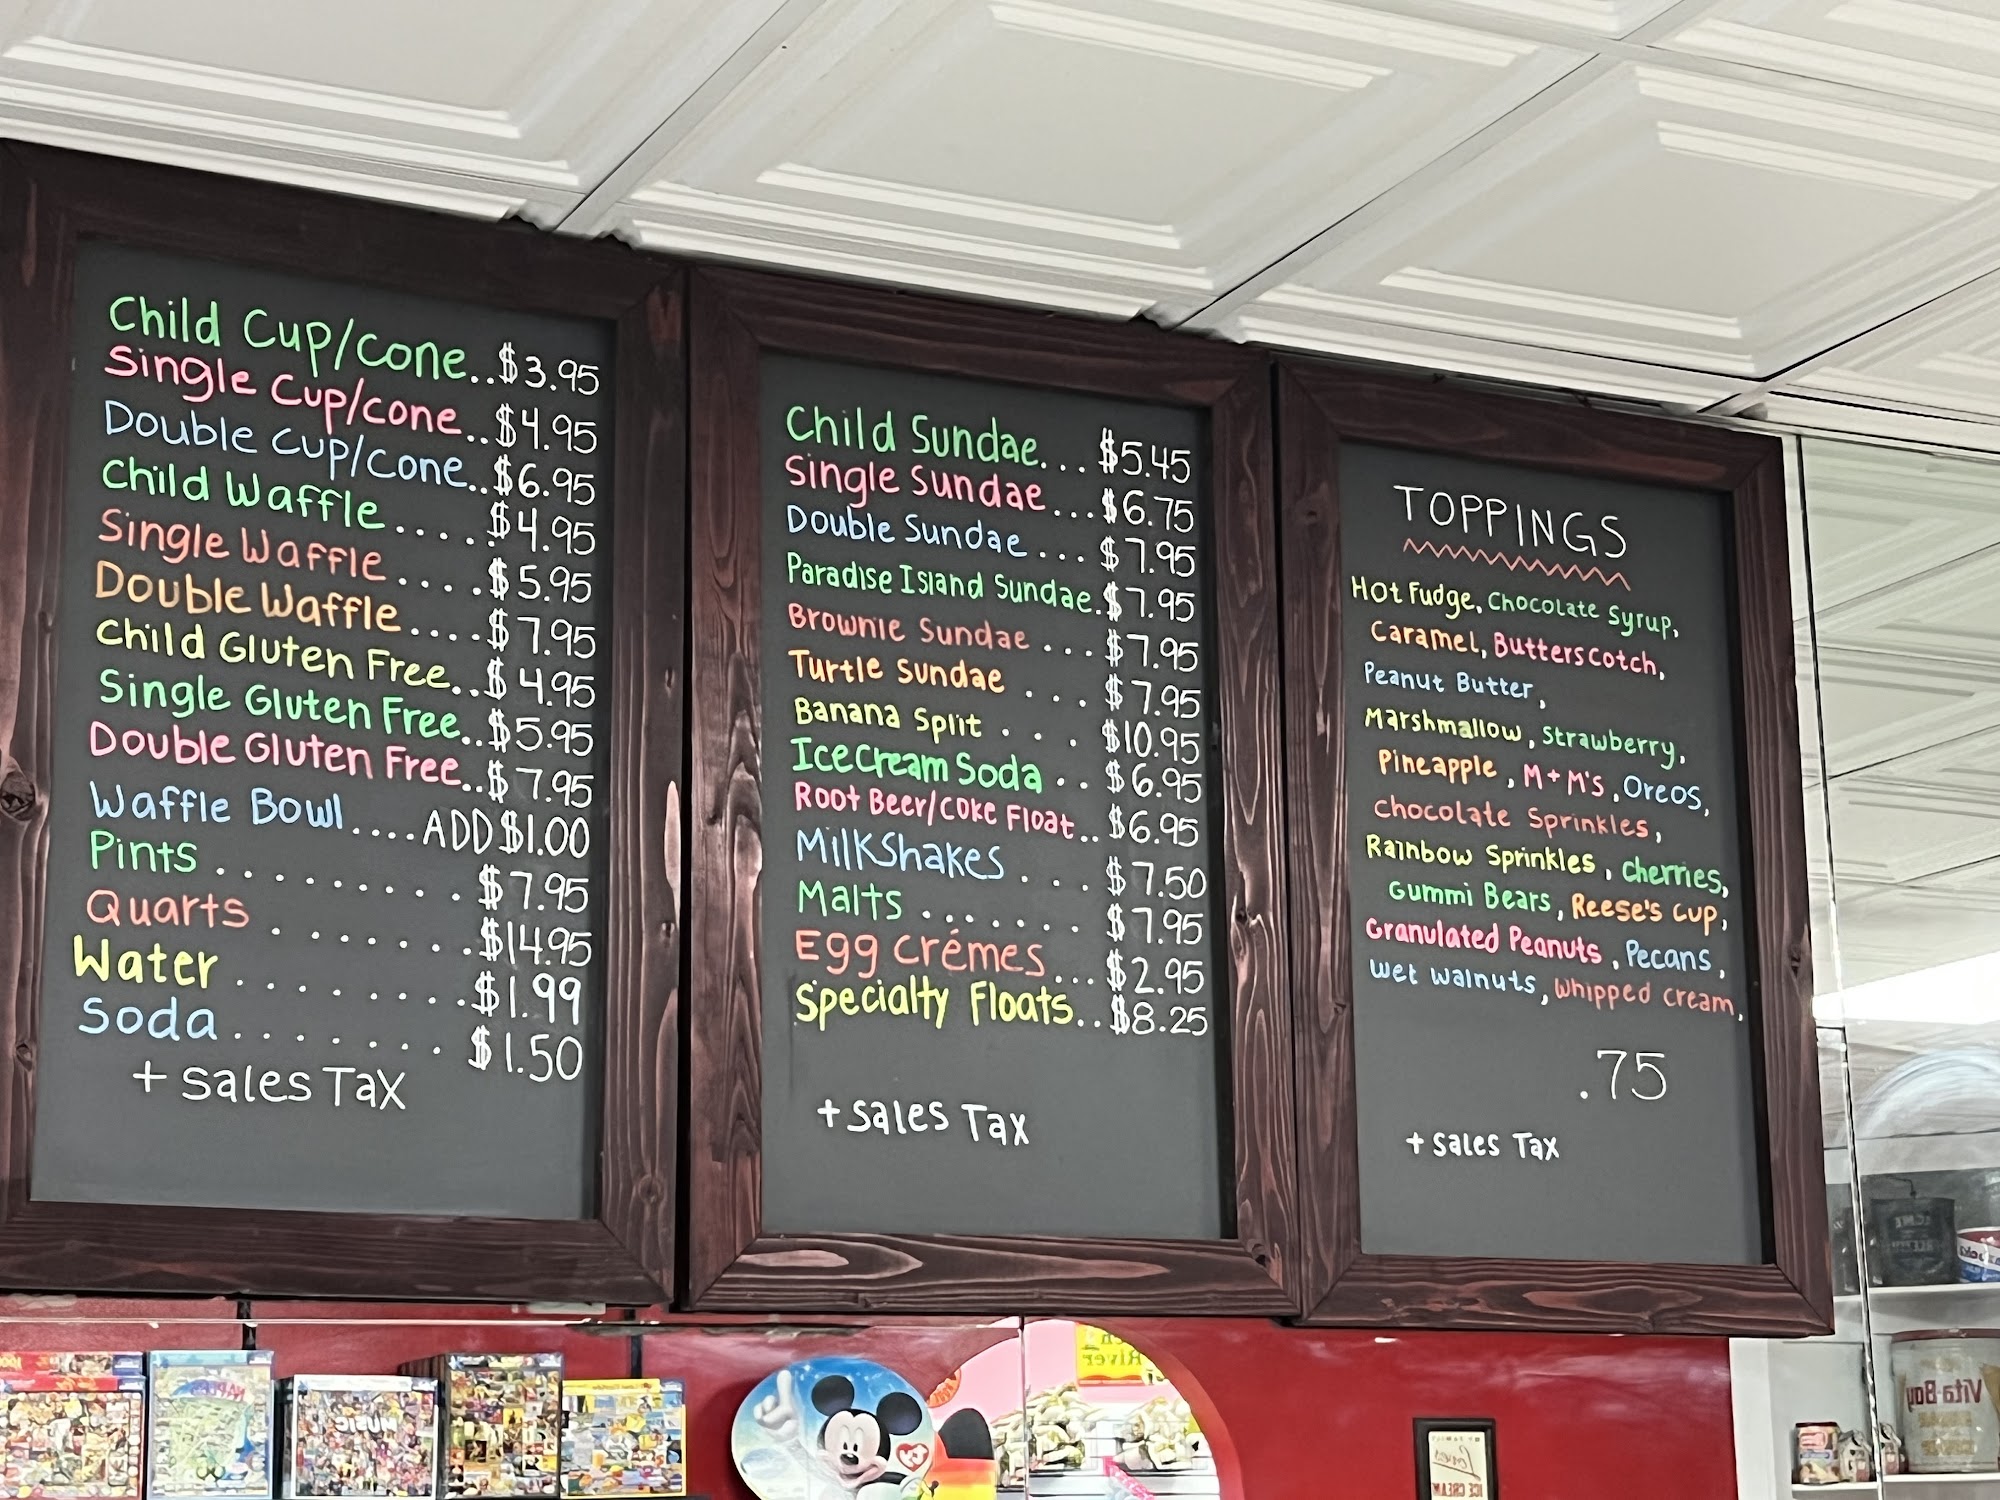 Child Cup/cone..$3.95
Single Cup/cone..$4.95
Double Cup/cone..$6.95
Child Waffle....$4.95
Single Waffle....$5.95
Double Waffle....$7.95
Child Gluten Free..$4.95
Single Gluten Free..$5.95
Double Gluten Free..$7.95
Waffle Bowl....ADD $1.00
Pints.........$7.95
Quarts.......$14.95
Water........$1.99
Soda.......$1.50
+ Sales Tax
Child Sundae...$5.45
Single Sundae...$6.75
Double Sundae...$7.95
Paradise Island Sundae.$7.95
Brownie Sundae...$7.95
Turtle Sundae...$7.95
Banana Split...$10.95
Ice Cream Soda..$6.95
Root Beer/Coke Float..$6.95
Milkshakes...$7.50
Malts.......$7.95
Egg Crémes...$2.95
Specialty Floats..$8.25
+ Sales Tax
TOPPINGS
Hot Fudge, Chocolate Syrup,
Caramel, Butterscotch,
Peanut Butter,
Marshmallow, Strawberry,
Pineapple, M+M's, Oreos,
Chocolate Sprinkles,
Rainbow Sprinkles, Cherries,
Gummi Bears, Reese's Cup,
Granulated Peanuts, Pecans,
Wet Walnuts, Whipped Cream,
.75
+ Sales Tax
MUSIC
River
Vita-Boy
ICE CREAM